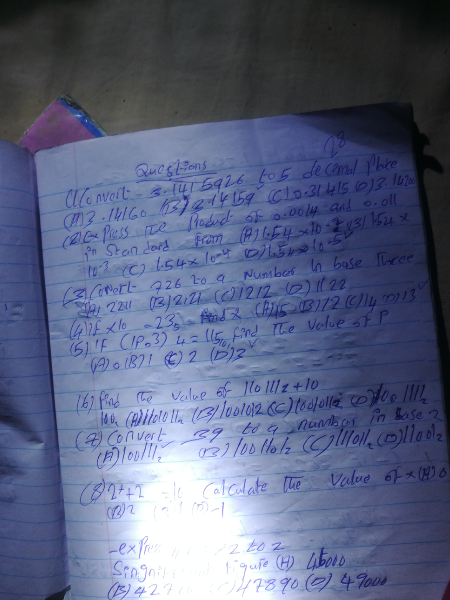 Questions
(1) Convert 3.1415926 to 5 decimal place
(A) 3.14160 (B) 3.14159 (C) 0.31415 (D) 3.1420
(2) Express the product of 0.0014 and 0.011
in standard from (A) 1.54 x 10⁻² (B) 1.54 x
10⁻³ (C) 1.54 x 10⁻⁴ (D) 1.54 x 10⁻⁵
(3) Convert 726 to a number in base three
(A) 2211 (B) 2121 (C) 1212 (D) 1122
(4) if x10 = 235 find x (A) 15 (B) 12 (C) 14 (D) 13
(5) if (1P03)4 = 11510, find the value of P
(A) 0 (B) 1 (C) 2 (D) 3
(6) find the value of 110111₂ + 10
100₂ (A) (B) (C) (D)
(7) Convert 39 to a number in base 2
(A) 100111₂ (B) 100110₂ (C) (D) 110012
(8) Calculate the value of x (A) 0
(B) 2 (D) -1
2 to 2
figure (A) 46000
(B) (C) 47890 (D) 49000